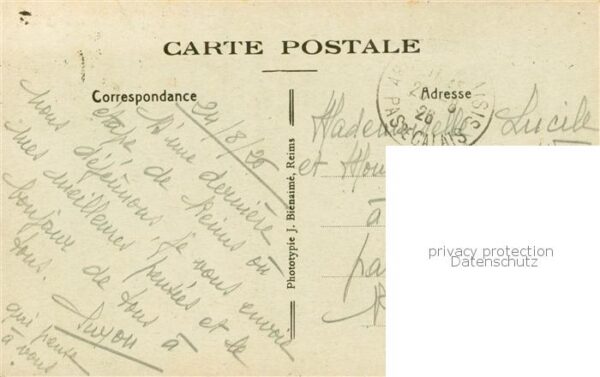 CARTE POSTALE
Correspondance
24/8/26
D'une dernière
étape de Reims où
nous déjeunons, je vous envoie
mes meilleures pensées et le
bonjour de tous à
tous.
Suzon
qui pense
à vous
Phototypie J. Bienaimé, Reims
Adresse
PAS DE CALAIS
26
Mademoiselle Lucile
et
à
privacy protection
Datenschutz